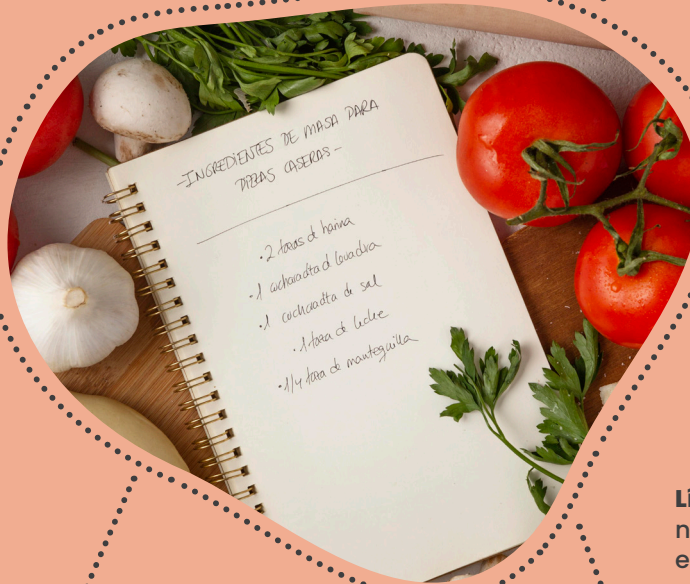 -INGREDIENTES DE MASA PARA
PIZZAS CASERAS-
• 2 tazas d harina
• 1 cucharadita d levadura
• 1 cucharadita de sal
• 1 taza de leche
• 1/4 taza de mantequilla
Li
n
e